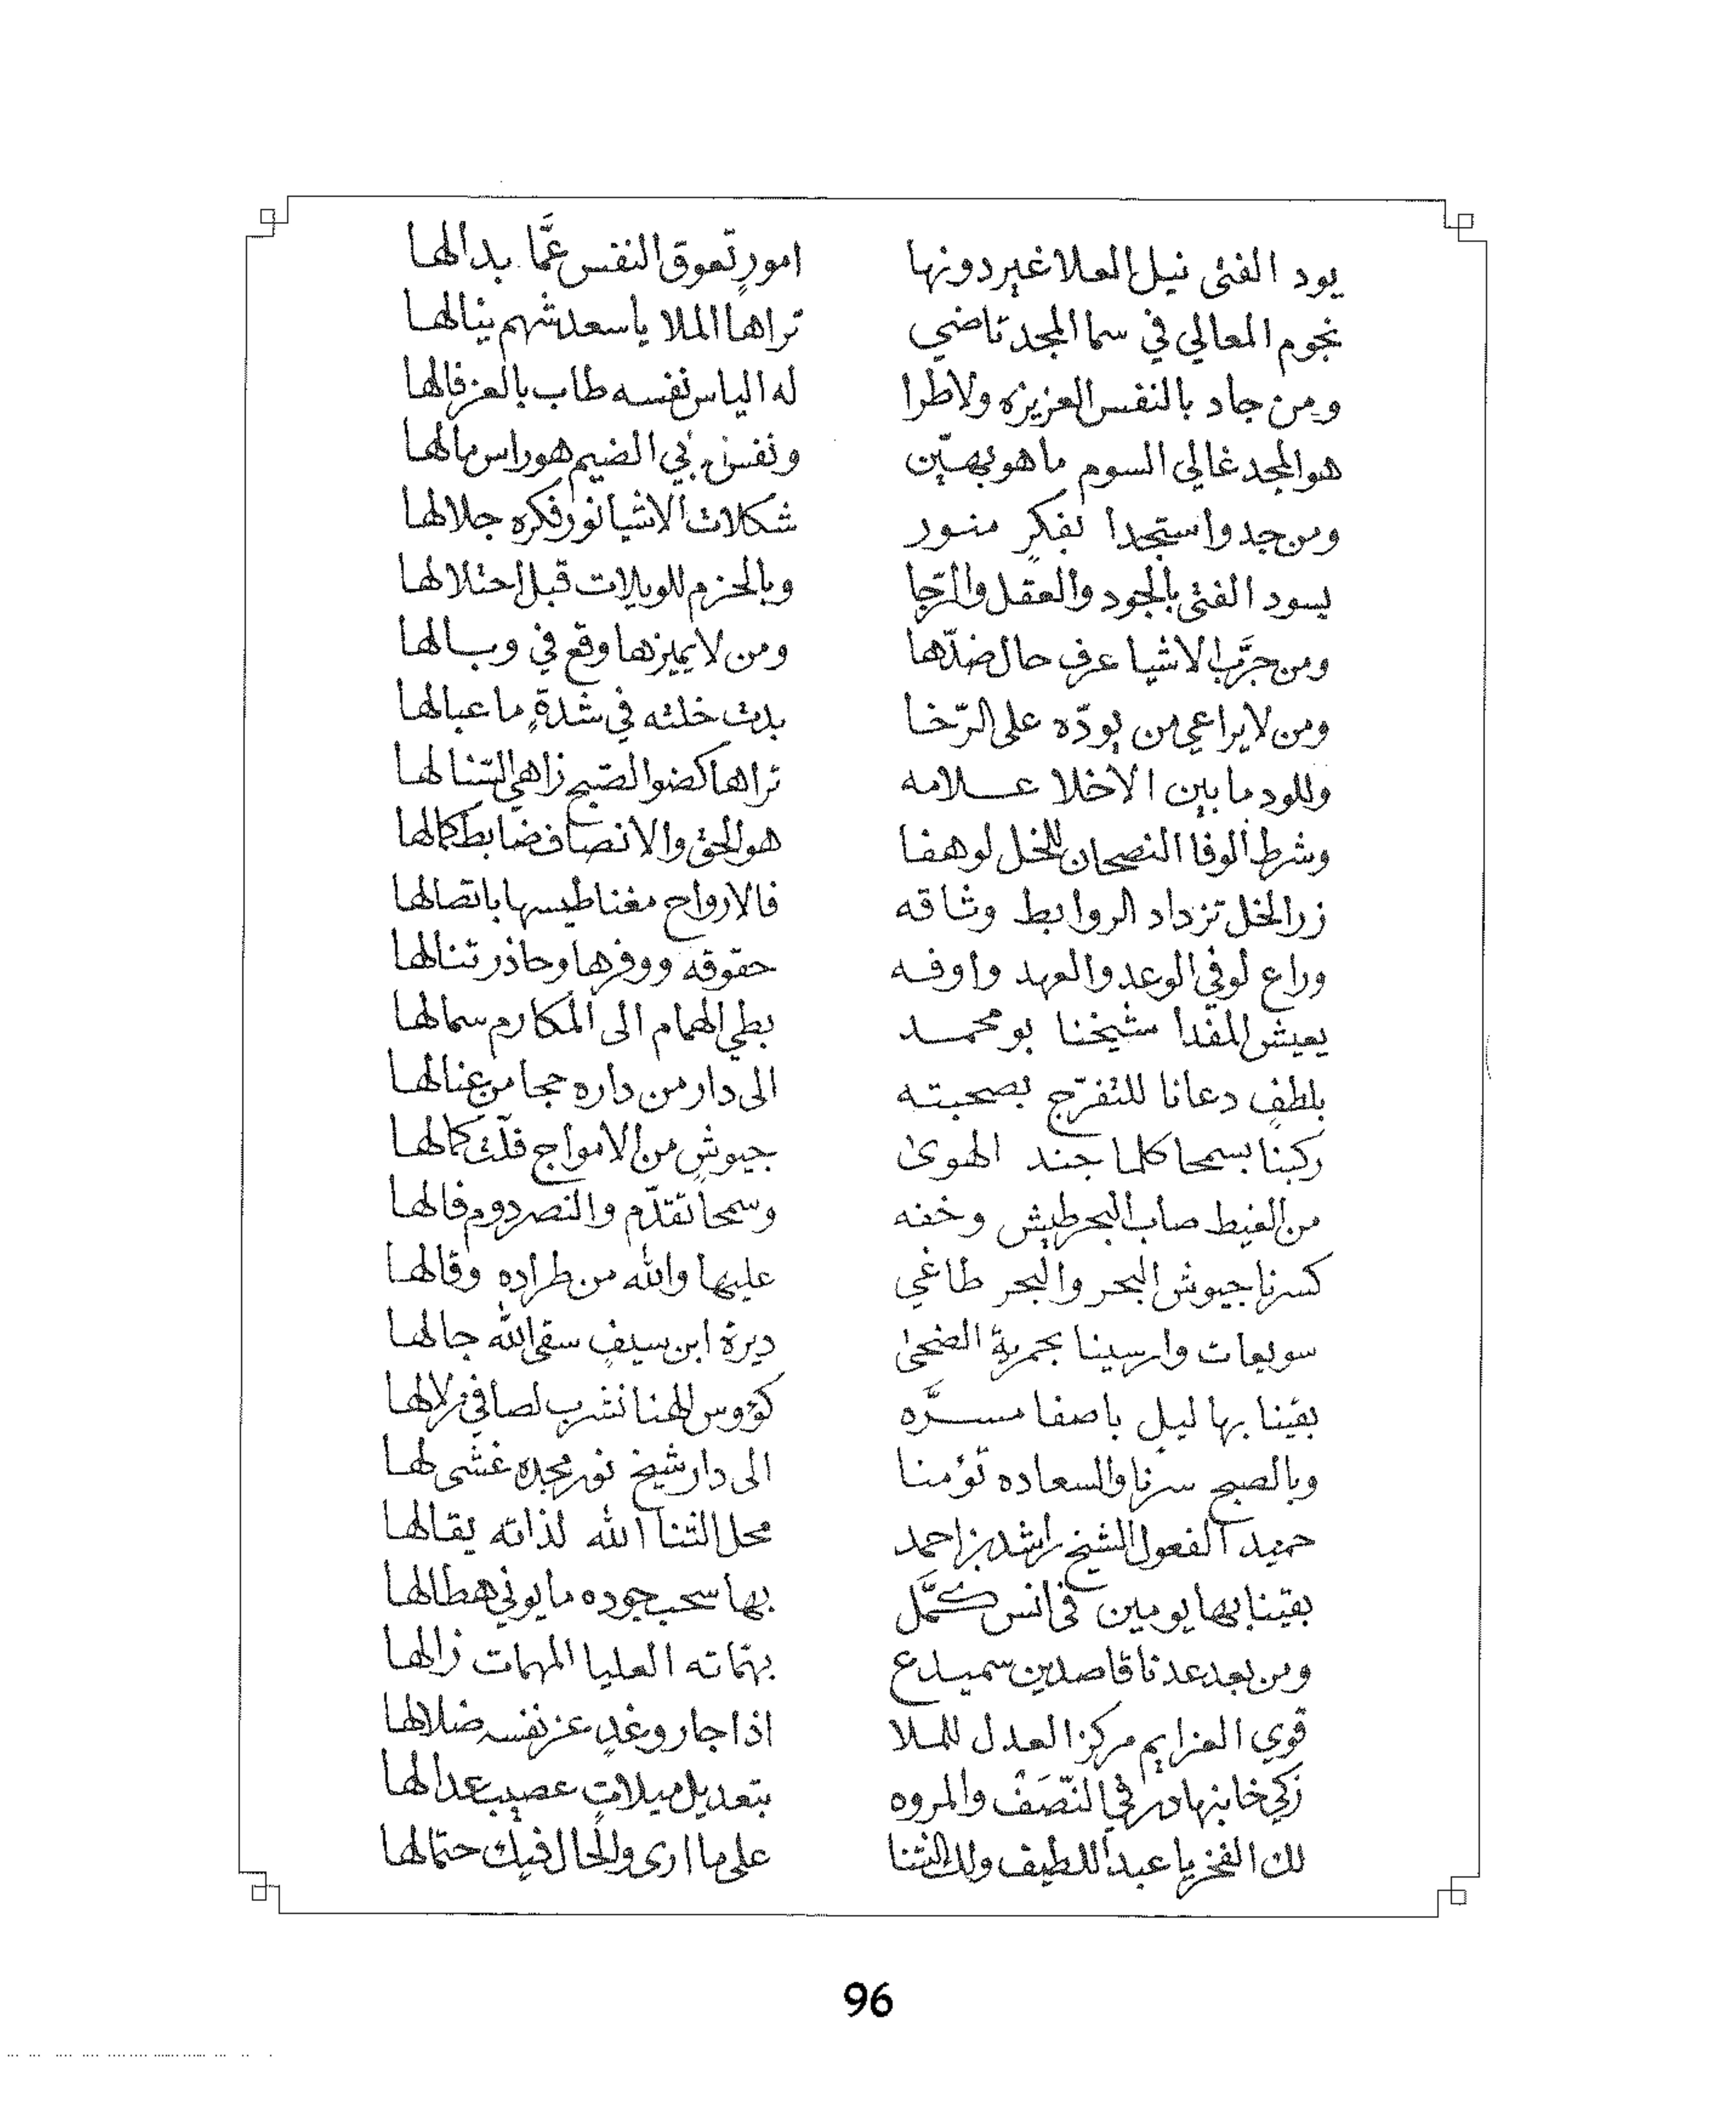 يود الفتى نيل العلا غير دونها امورٍ تعوق النفس عمَّا بدالها
نجوم المعالي في سما المجد تاضي تراها الملا يا سعد شهم ينالها
ومن جاد بالنفس العزيزه ولاطرا له الياس نفسه طاب بالعز فالها
هو المجد غالي السوم ما هو بهيّن ونفس بي الضيم هو راس مالها
ومن جد واستجدا بفكرٍ منور شكلات الاشيا نور فكره جلالها
يسود الفتى بالجود والعقل والرّجا وبالحزم للويلات قبل احتلالها
ومن جرَّب الاشيا عرف حال ضدّها ومن لا يميزها وقع في وبالها
ومن لا يراعي من يودّه على الرّخا بدت خلته في شدةٍ ما عبالها
وللود ما بين الاخلا علامه تراها كضو الصّبح زاهي التنالها
وشرط الوفا النصحان للخل لو هفا هو الحق والانصاف ضابط كمالها
زر الخل تزداد الروابط وثاقه فالارواح مغناطيسها باتصالها
وراع لوفي الوعد والعهد واوفه حقوقه ووفرها وحاذر تنالها
يعيش المفدا شيخنا بو محمد بطي الهمام الى المكارم سمالها
بلطفٍ دعانا للتفرّج بصحبته الى دار من داره حجا من عنالها
ركبنا بسمحا كلما جند الهوى جيوشٍ من الامواج فلّت كمالها
من الغيط صاب البحر طيش وخفه وسمحا تقدّم والنصر دوم فالها
كسرنا جيوش البحر والبحر طاغي عليها والله من طراده وقالها
سويعات وارسينا بجمرية الضحى ديرة ابن سيفٍ سقى الله جالها
بقينا بها ليل باصفا مسرَّه كؤوس الهنا نشرب لصافي زلالها
وبالصبح سرنا والسعاده تؤمنا الى دار شيخ نور مجده غشى لها
حميد الفعول الشيخ راشد بن احمد محل الثنا الله لذاته يقالها
بقينا بها يومين في انس كمَّل بها سحب جوده ما يوني هطالها
ومن بعد عدنا قاصدين سميدع بهمّاته العليا المهمات زالها
قوي العزايم مركز العدل للملا اذا جار وغدٍ عز نفسه ضلالها
زكي خانبهادر في النّصَفْ والمروه بتعديل ميلاتٍ عصيب عدالها
لك الفخر يا عبد اللطيف ولك الثنا على ما ارى والحال فيك حتمالها
96